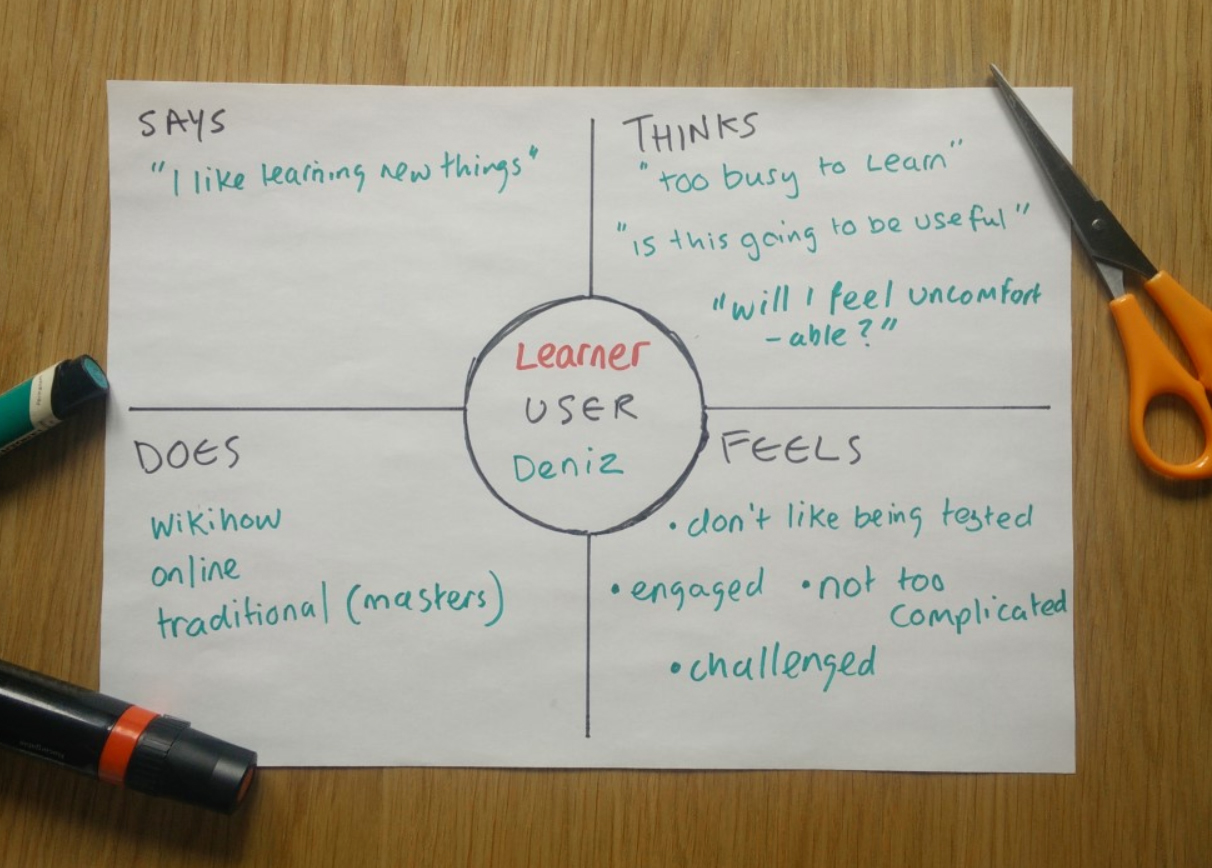 SAYS
"I like learning new things"
THINKS
"too busy to Learn"
"is this going to be useful"
"will I feel uncomfort
-able?"
Learner
USER
Deniz
DOES
wikihow
online
traditional (masters)
FEELS
• don't like being tested
• engaged • not too
complicated
• challenged